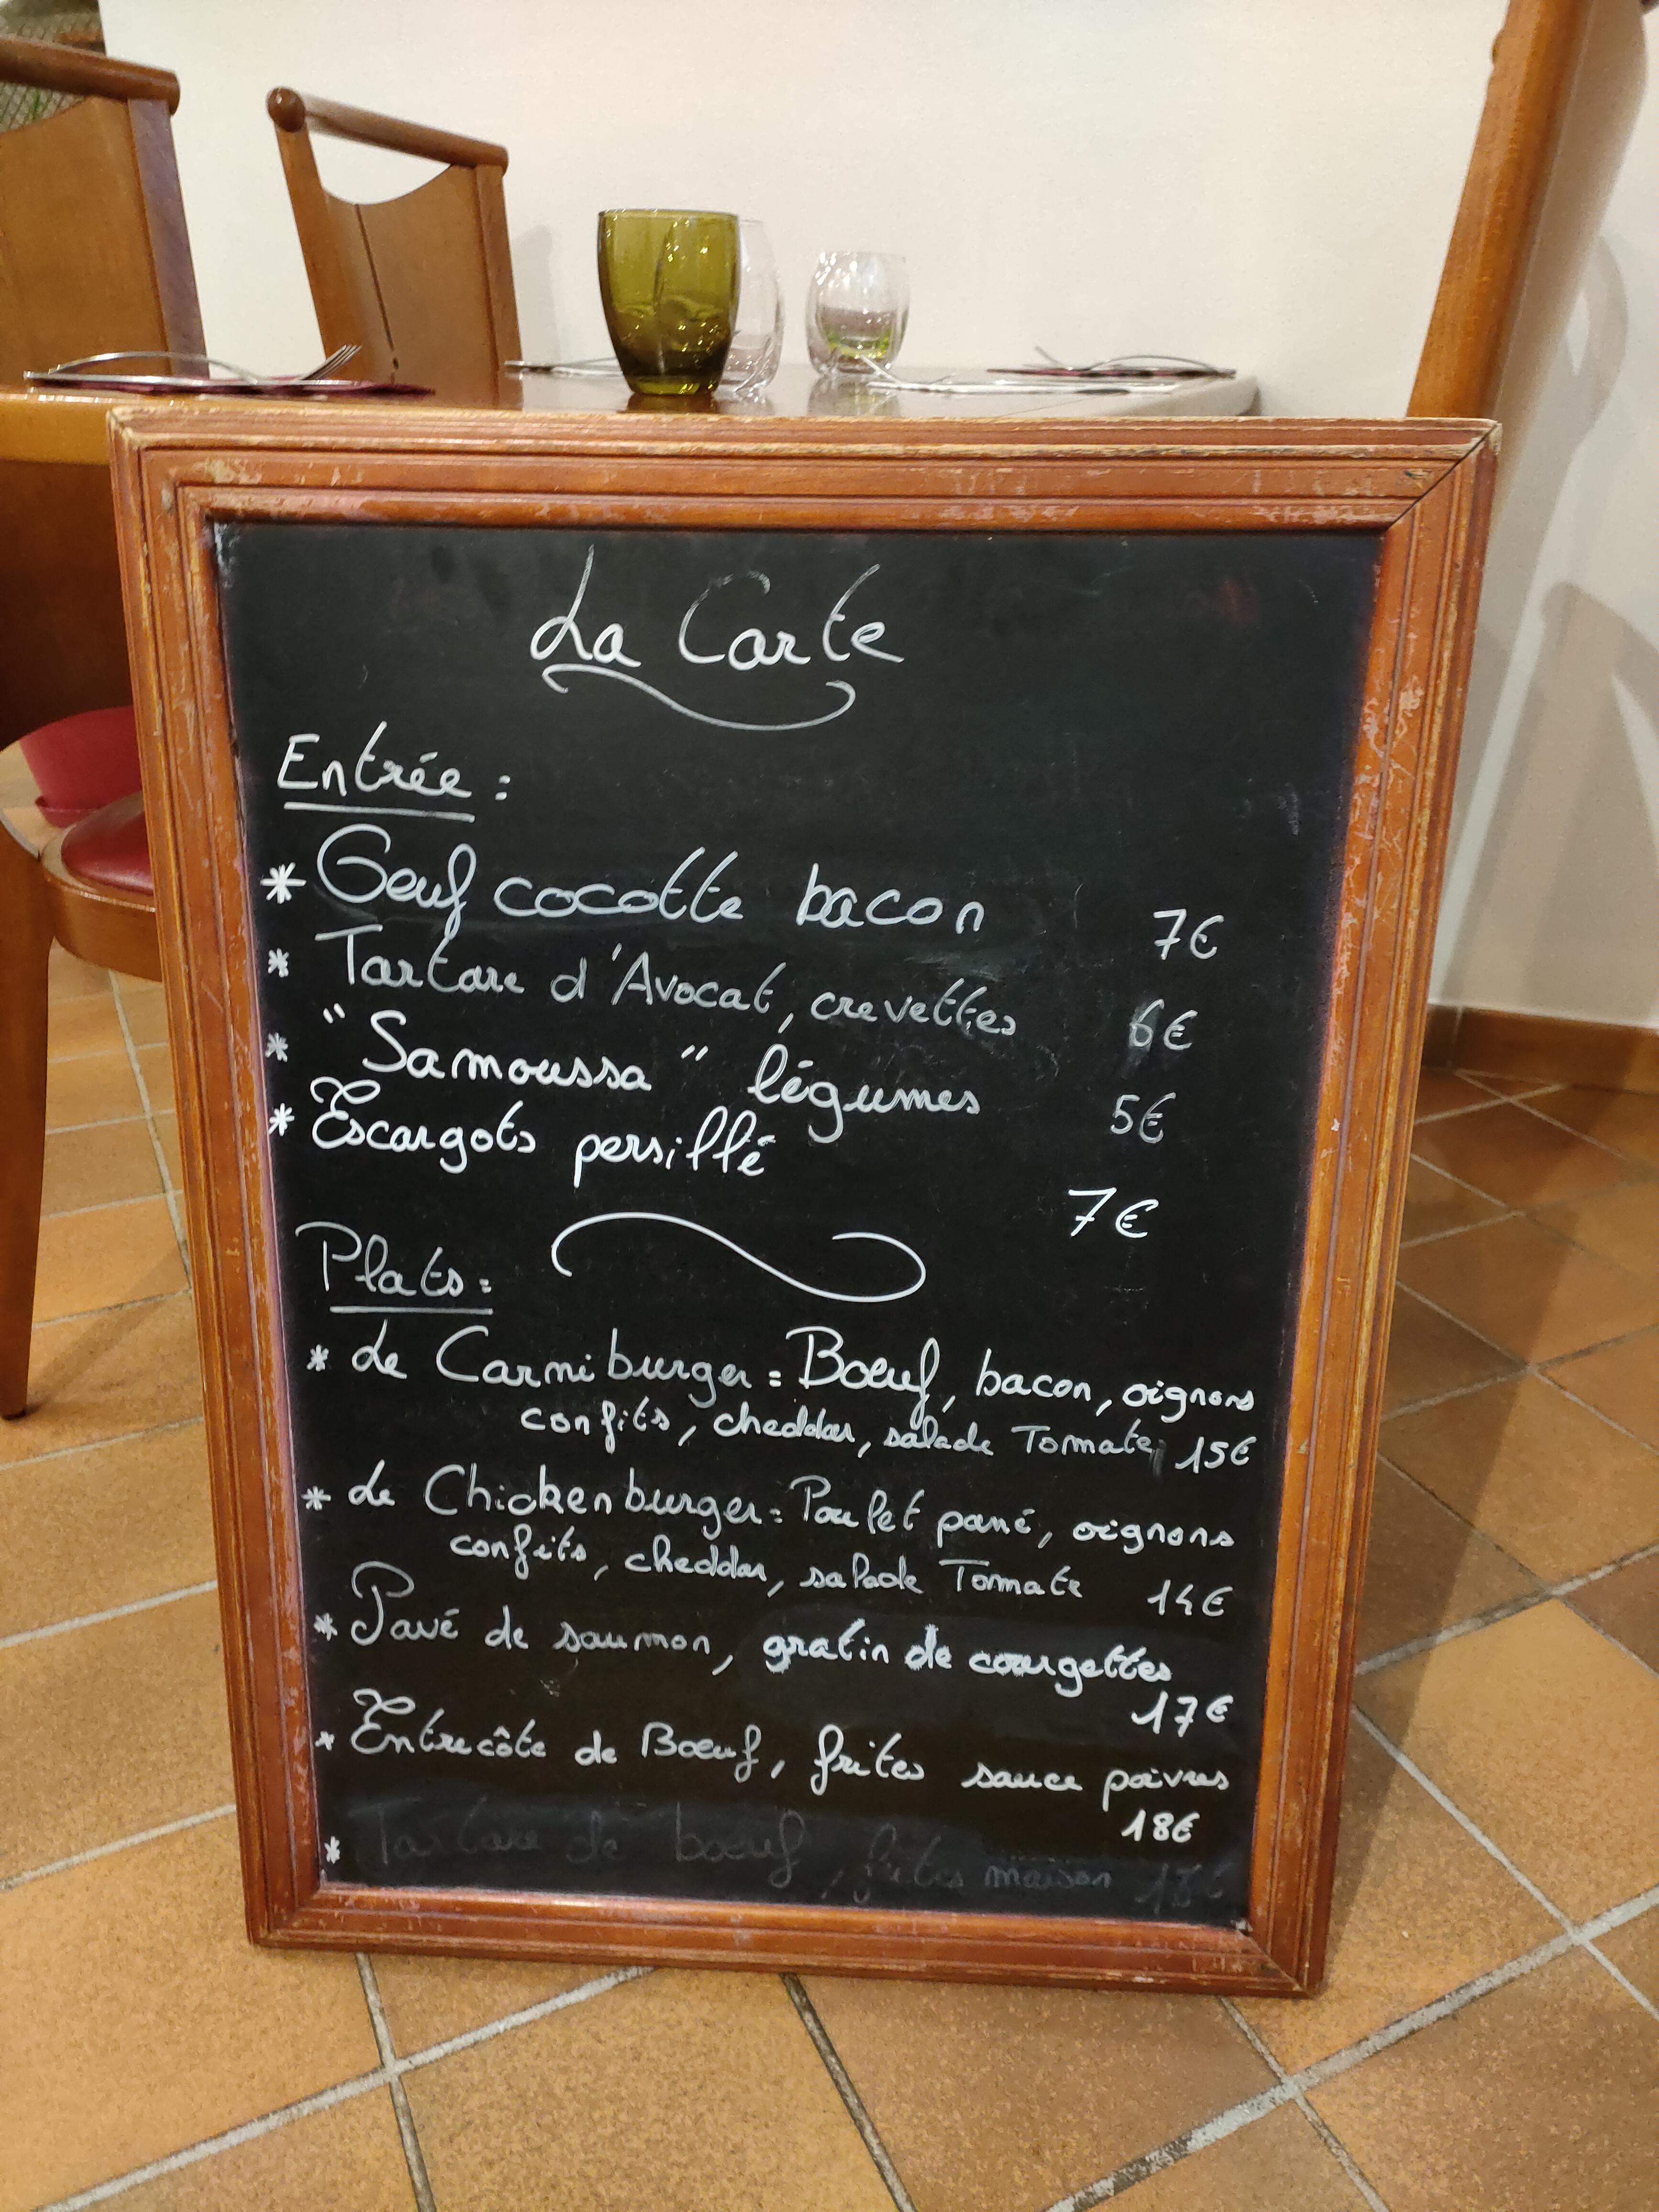 La Carte
Entrée :
* Oeuf cocotte bacon 7€
* Tartare d'Avocat, crevettes 6€
* "Samoussa" légumes 5€
* Escargots persillé 7€
Plats :
* Le Carmiburger : Boeuf, bacon, oignons
confits, cheddar, salade Tomate, 15€
* Le Chickenburger : Poulet pané, oignons
confits, cheddar, salade Tomate 14€
* Pavé de saumon, gratin de courgettes
17€
* Entrecôte de Boeuf, frites sauce poivres
18€
* Tartare de boeuf, frites maison